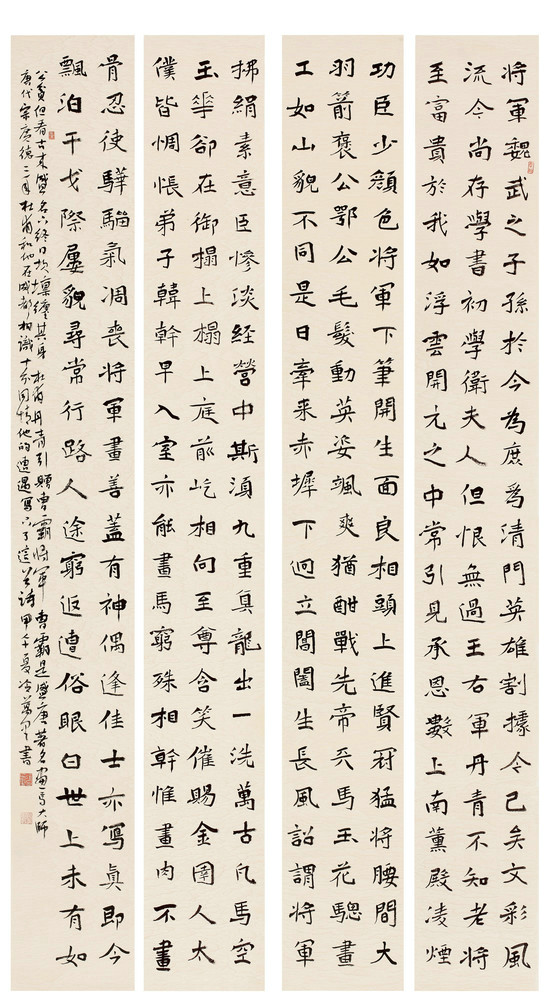 將軍魏武之子孫於今為庶為清門英雄割據今已矣文彩風
流今尚存學書初學衛夫人但恨無過王右軍丹青不知老將
至富貴於我如浮雲開元之中常引見承恩數上南薰殿凌煙
功臣少顏色將軍下筆開生面良相頭上進賢冠猛將腰間大
羽箭褒公鄂公毛髮動英姿颯爽猶酣戰先帝天馬玉花驄畫
工如山貌不同是日牽來赤墀下迥立閶闔生長風詔謂將軍
拂絹素意匠慘淡經營中斯須九重真龍出一洗萬古凡馬空
玉花卻在御榻上榻上庭前屹相向至尊含笑催賜金圉人太
僕皆惆悵弟子韓幹早入室亦能畫馬窮殊相幹惟畫肉不畫
骨忍使驊騮氣凋喪將軍畫善蓋有神偶逢佳士亦寫真即今
飄泊干戈際屢貌尋常行路人途窮返遭俗眼白世上未有如
公貧但看古來盛名下終日坎壈纏其身杜甫丹青引贈曹霸將軍曹霸是盛唐著名畫馬大師
唐代宗廣德二年杜甫和他在成都相識十分同情他的遭遇寫下了這首詩甲午夏書